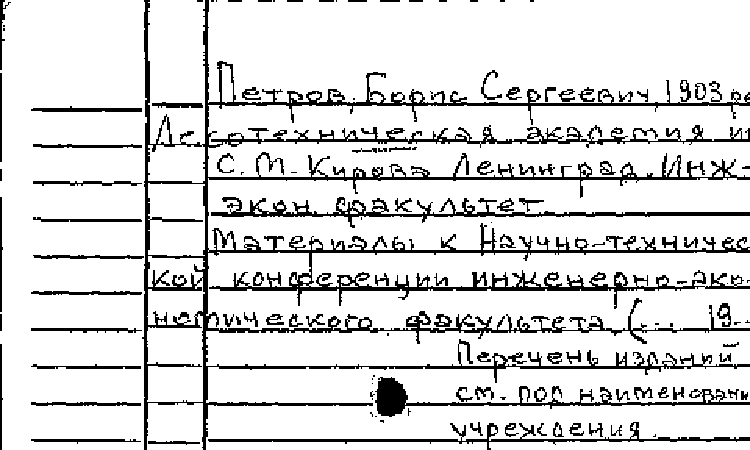 Петров, Борис Сергеевич, 1903 ре
Лесотехническая академия и
С. М. Кирова Ленинград. Инж-
экон. факультет.
Материалы к Научно-техничес
кой конференции инженерно-эко-
номического факультета. (... 19--
Перечень изданий
см. под наименовани
учреждения